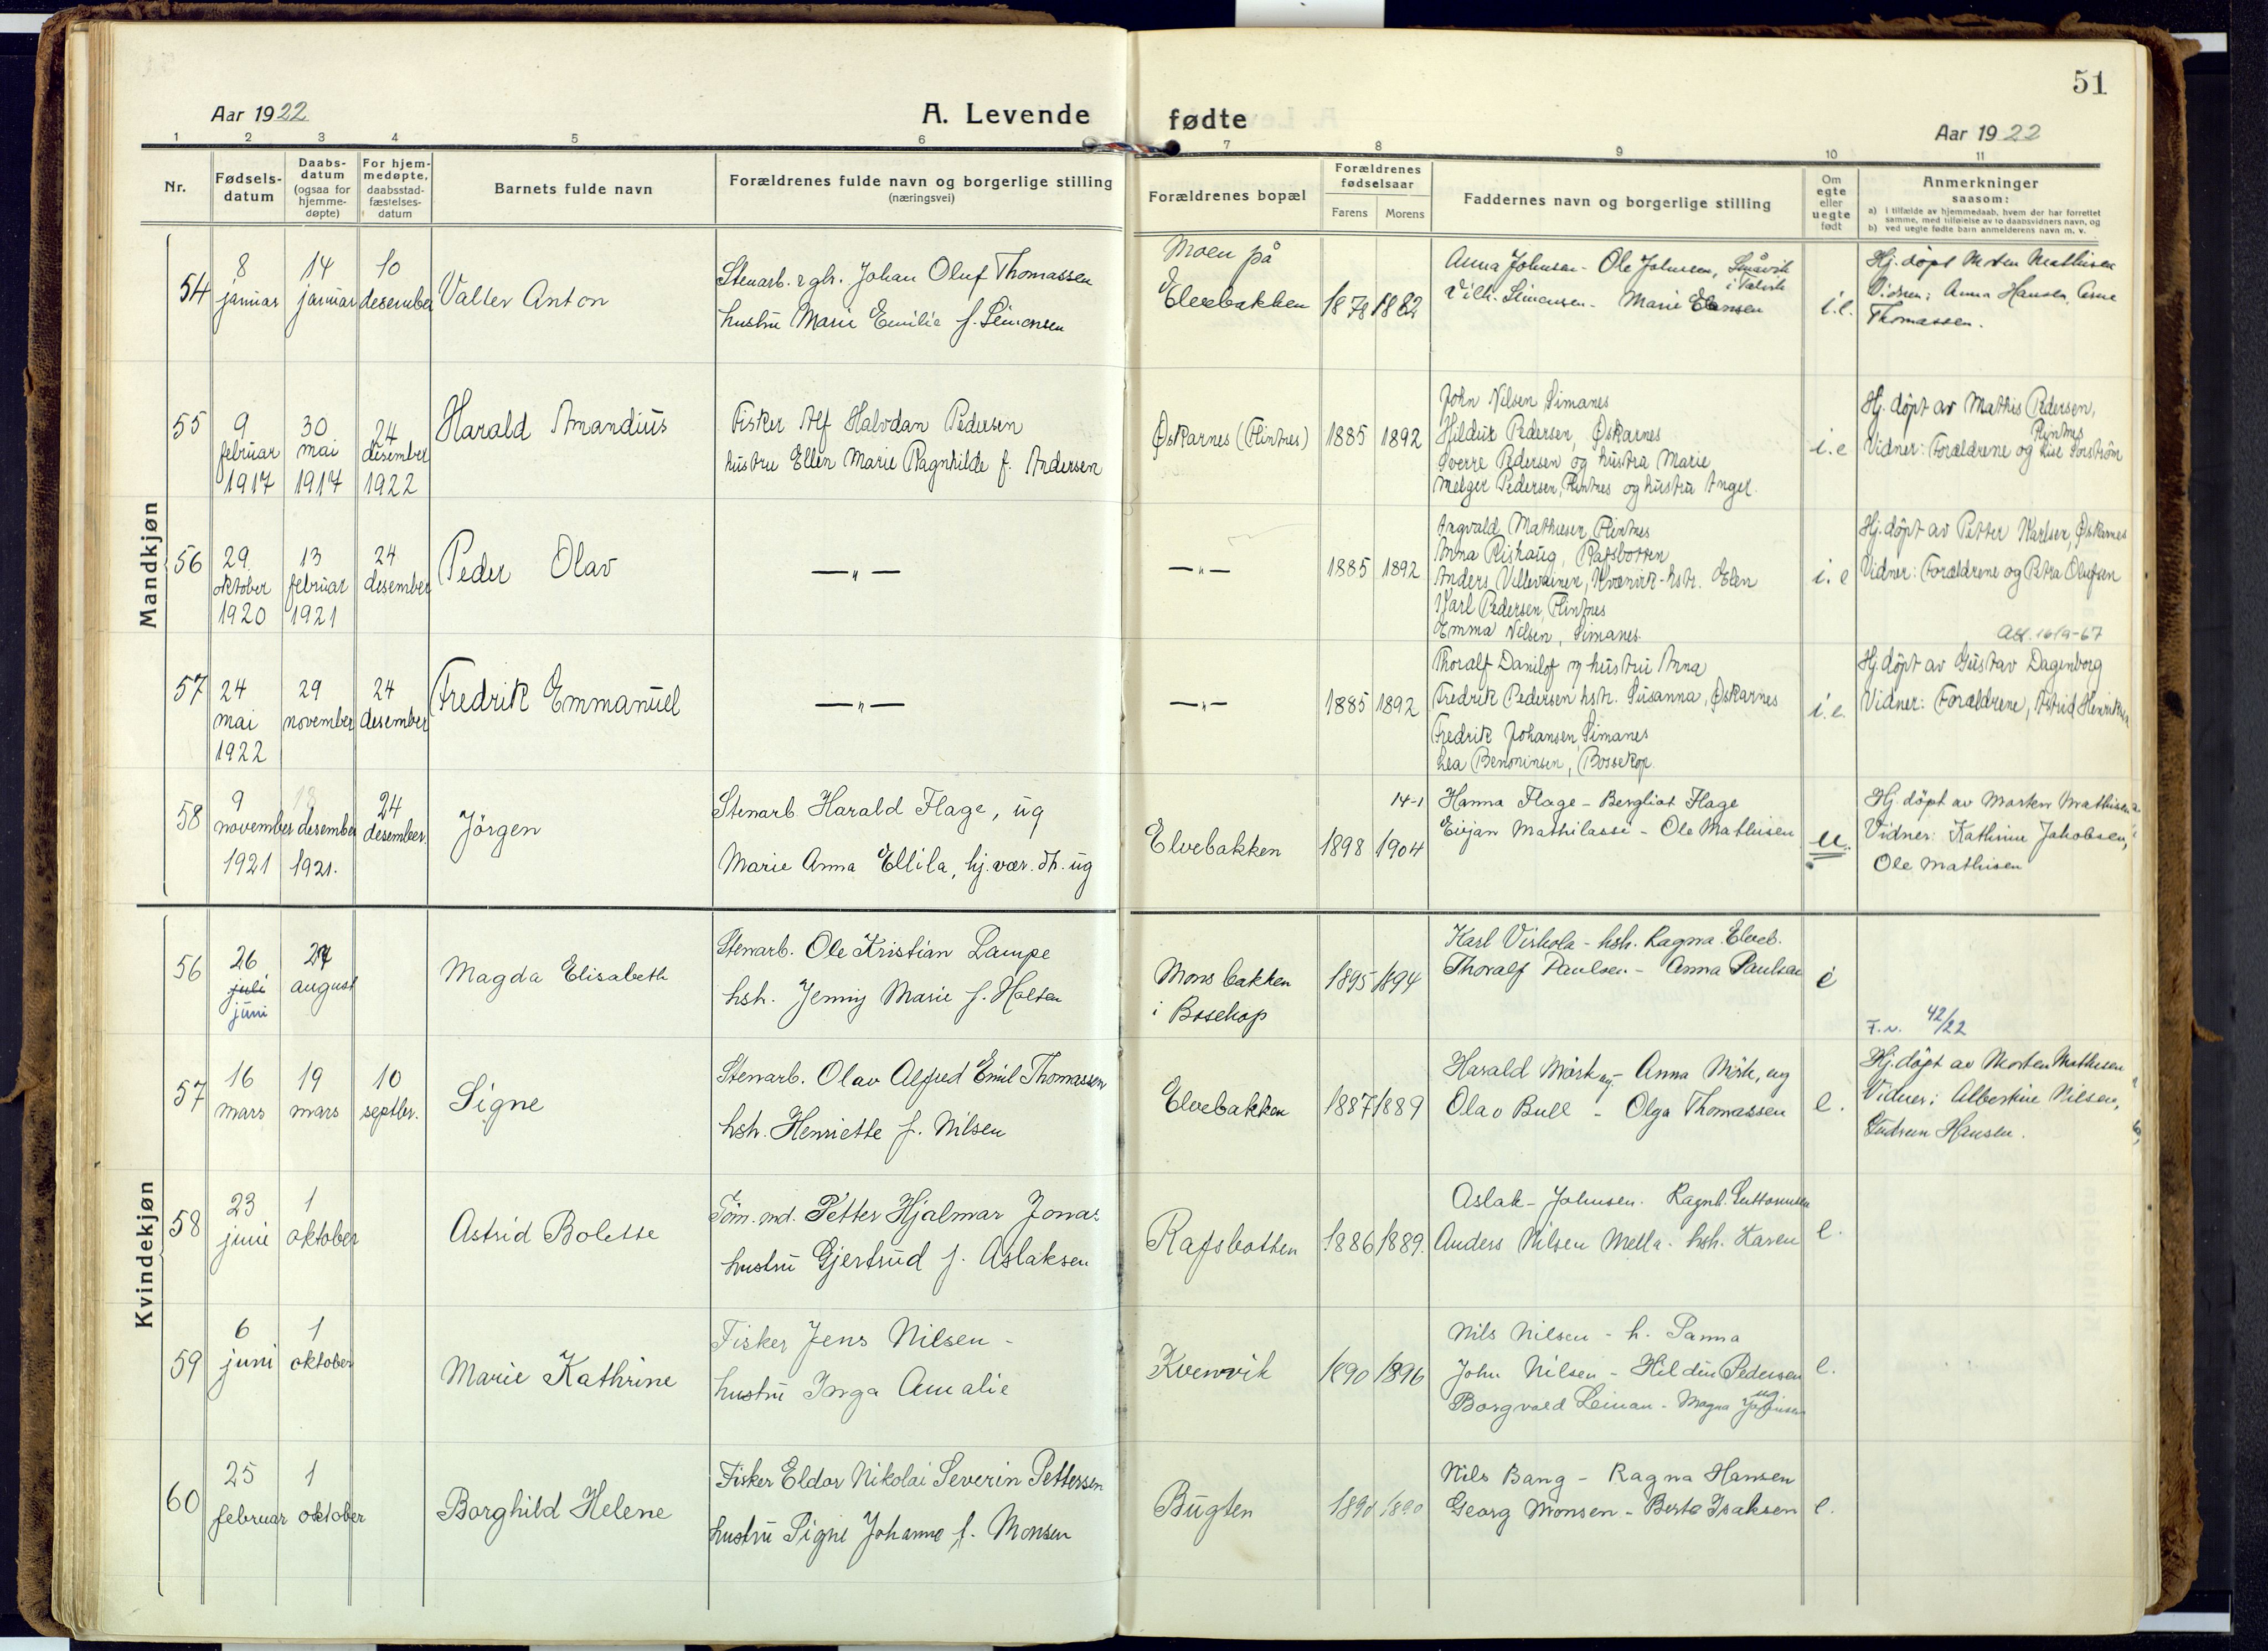 51
Aar 1922
A. Levende
fødte
Aar 1922
1 2 3 4 5 6 7 8 9 10 11
Nr.
Fødsels-
datum
Daabs-
datum
(ogsaa for
hjemme-
døpte)
For hjem-
medøpte,
daabsstad-
fæstelses-
datum
Barnets fulde navn
Forældrenes fulde navn og borgerlige stilling
(næringsvei)
Forældrenes bopæl
Forældrenes
fødselsaar
Farens Morens
Faddernes navn og borgerlige stilling
Om
egte
eller
uegte
født
Anmerkninger
saasom:
a) i tilfælde av hjemmedaab, hvem der har forrettet
samme, med tilføielse av to daabsvidners navn, og
b) ved uegte fødte barn anmelderens navn m. v.
Mandkjøn
54
8
januar
14
januar
10
desember
Valter Anton
Stenarb. Johan Oluf Thomassen
hustru Marie Emilie f. Simonsen
Moen på
Elvebakken
1878 1882
Anna Johnsen - Ole Johnsen,
Vilh. Simonsen - Marie
Hj. døpt Morten Mathisen
Vidner: Anna Hansen,
Thomassen.
55
9
februar
1917
30
mai
1917
24
desember
1922
Harald Amandius
Fisker Alf Halvdan Pedersen
hustru Ellen Marie Ragnhilde f. Andersen
Øskarnes (Flintnes)
1885 1892
John Nilsen, Simanes
Hildur Pedersen, Øskarnes
Sverre Pedersen og hustru Marie
Melger Pedersen, Flintnes og hustru Angel.
i. e
Hj. døpt av Mathis Pedersen,
Flintnes
Vidner: Forældrene og
56
29.
oktober
1920
13
februar
1921
24
desember
Peder Olav
— „ —
— „ —
1885 1892
Mathisen, Flintnes
Anna Rishaug, Rafsbotten
Anders Kvænvik - hstr. Elen
Karl Pedersen, Flintnes
Emma Nilsen, Simanes
i. e
Hj. døpt av Petter Karlsen, Øskarnes
Vidner: Forældrene og Petra Olufsen
57
24
mai
1922
29
november
24
desember
Fredrik Emmanuel
— „ —
— „ —
1885 1892
Thoralf Danilof og hustru Anna
Fredrik Pedersen hstr. Susanna, Øskarnes
Fredrik Johansen, Simanes
Lea Benoninsen, Bossekop.
i. e.
Hj. døpt av Gustav Dagenborg
Vidner: Forældrene, Astrid
58
9
november
1921
desember
1921.
24
desember.
Jörgen
Stenarb Harald Flage, ug
Marie Anna Ellila, hj. vær. dt. ug
Elvebakken
14-1
1898 1904
Hanna Flage - Bergliot Flage
Mathilassi - Ole Mathisen
u.
Hj. døpt av Morten Mathisen
Vidner: Kathrine Jakobsen,
Ole Mathisen
Kvindekjøn
56
26
juli
juni
27
august
Magda Elisabeth
Stenarb. Ole Kristian Lampe
hstr. Jenny Marie f. Holten
Mons bakken
i Bosekop
1895 1894
Karl Viskola - hstr. Ragna. Elveb.
Thoralf Paulsen - Anna Paulsen
e
F. v. 42/22
57
16
mars
19
mars
10
septbr.
Signe
Stenarb. Olav Alfred Emil Thomassen
hstr. Henriette f. Nilsen
Elvebakken
1887 1889
Harald Mörk ug - Anna Mörk, ug
Olav Bull - Olga Thomassen
e.
Hj. døpt av Morten Mathisen
Vidner: Albertine Nilsen,
Gudrun Hansen.
58
23
juni
1
oktober
Astrid Bolette
Töm. md. Petter Hjalmar Jonas
hustru Gjertrud f. Aslaksen
Rafsbotten
1886 1889.
Aslak - Johnsen. Ragnh.
Anders Nilsen Mella - hstr. Karen
e.
59
6
juni
1
oktober
Marie Kathrine
Fisker Jens Nilsen -
hustru Inga Amalie
Kvenvik
1890 1896
Nils Nilsen - h. Sanna
John Nilsen - Hildur Pedersen
ug
Borgvald Leinan - Magna
e.
60
25
februar
1
oktober
Borghild Helene
Fisker Eldor Nikolai Severin Pettersen
hustru Signe Johanne f. Monsen
Bugten
1890 1890
Nils Bang - Ragna Hansen
Georg Monsen - Berta Isaksen
e.